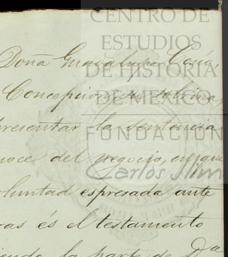 CENTRO DE
ESTUDIOS
DE HISTORIA
DE MÉXICO
FUNDACIÓN
Carlos Slim
Doña Guadalupe
presentar la sentencia
noce del negocio, en que
luntad espresada ante
ras és el testamento
iendo la parte de Dª